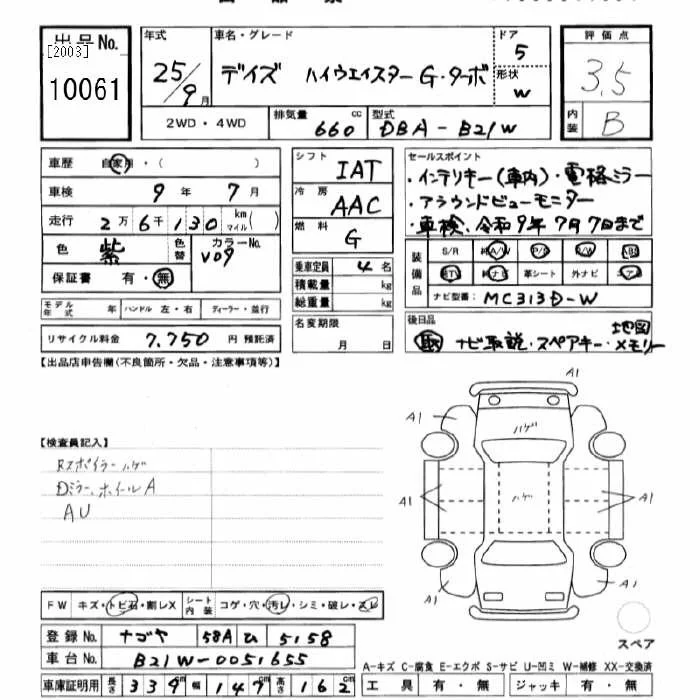 出品No.
[2003]
10061
年式
25/9月
車名・グレード
デイズ ハイウェイスターG・ターボ
ドア
5
形状
W
評価点
3.5
内装
B
2WD・4WD
排気量
660 cc
型式
DBA-B21W
車歴 自家用・( )
車検 9年 7月
走行 2万6千130 km マイル( )
色 紫 色替
カラーNo.
V09
保証書 有・無
シフト
IAT
冷房
AAC
燃料
G
乗車定員 4名
積載量 kg
総重量 kg
セールスポイント
・インテリキー(車内)・電格ミラー
・アラウンドビューモニター
・車検、令和9年7月7日まで
装備品
S/R 純A/W P/S P/W ABS
純TV 純ナビ 革シート 外ナビ エアB
ナビ型番: MC313D-W
モデル年式 年 ハンドル 左・右 ディーラー・並行
リサイクル料金 7,750 円 預託済
名変期限
月 日
後日品
取 ナビ取説・スペアキー・地図メモリー
【出品店申告欄(不良箇所・欠品・注意事項等)】
【検査員記入】
Rスポイラーハゲ
Dミラー、ホイールA
AU
A1
A1
A1
ハゲ
A1
ハゲ
A1
A1
A1
FW キズ・トビ石・割レX
シート内装 コゲ・穴・汚レ・シミ・破レ・スレ
登録No. ナゴヤ 58A ひ 5158
車台No. B21W-0051655
車庫証明用 長さ 339 幅 147 高さ 162
スペア
A-キズ C-腐食 E-エクボ S-サビ U-凹ミ W-補修 XX-交換済
工具 有・無 ジャッキ 有・無